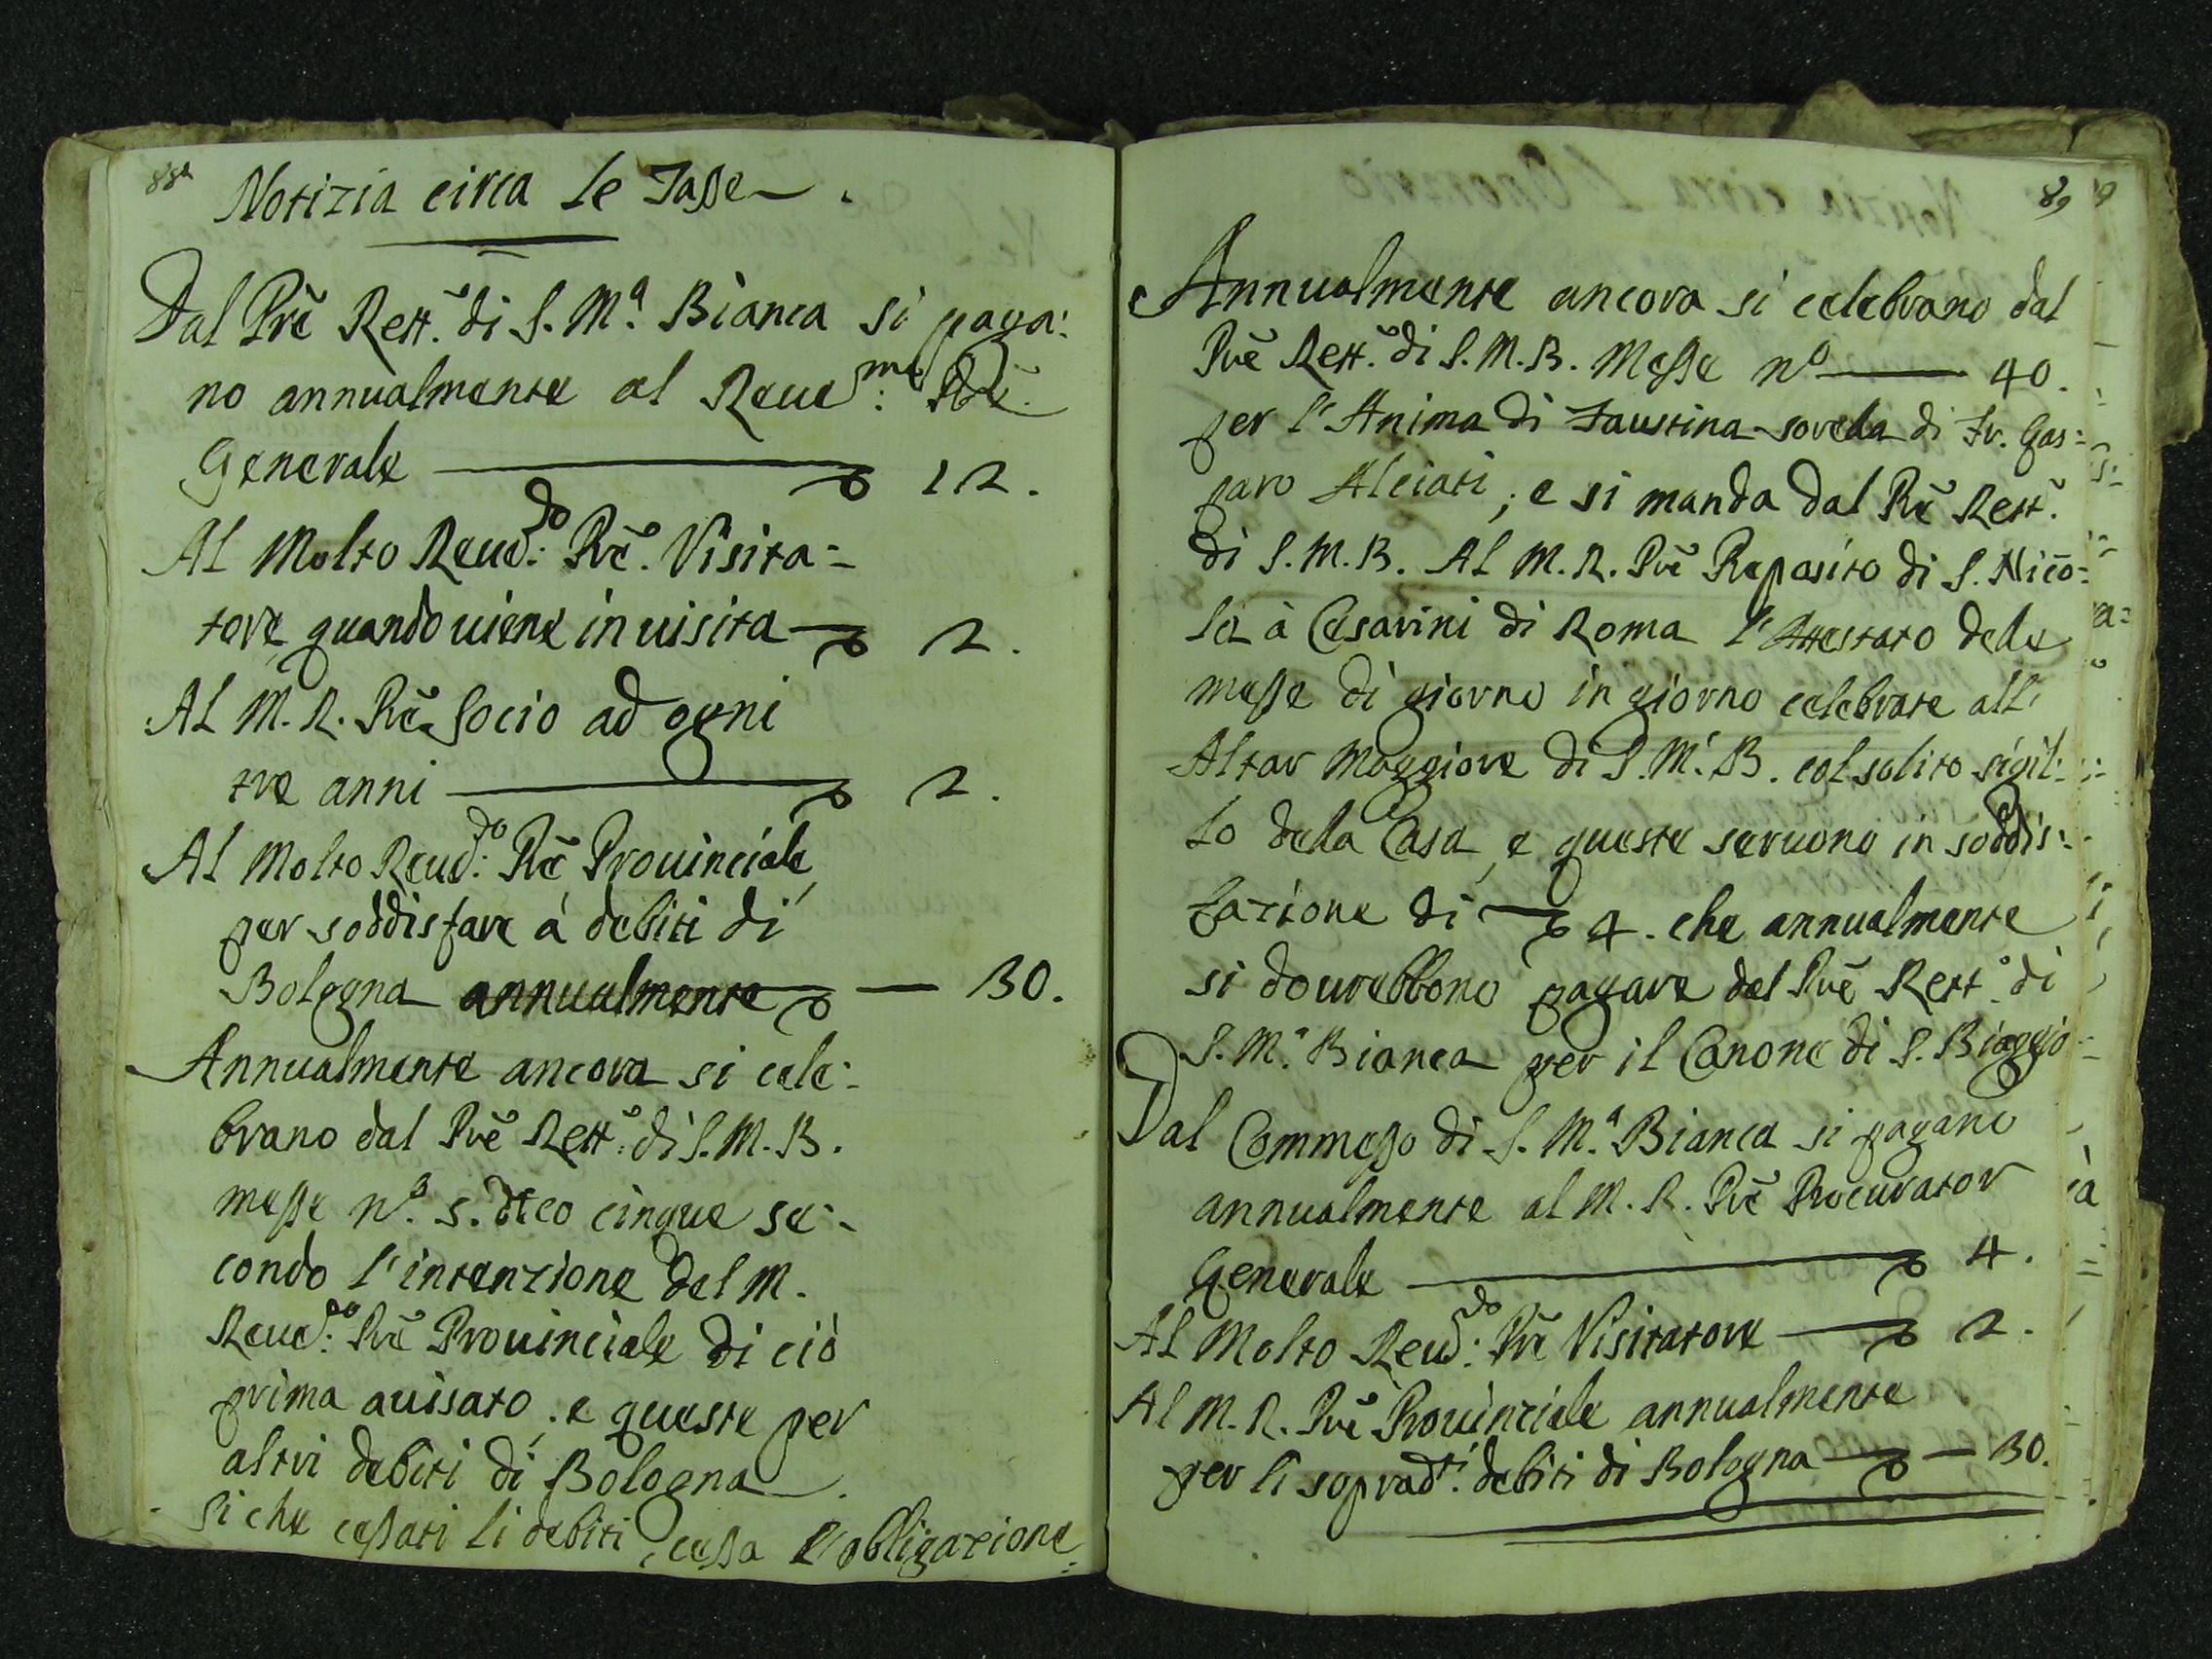 88
Notizia circa le Tasse.
Dal Pre Rett.e di S. M.a Bianca si paga:
no annualmente al Reue:mo Pre.
Generale 12.
Al Molto Reud:do Pre. Visita=
tore quando uiene in uisita 2.
Al M. R. Pre Socio ad ogni
tre anni 2.
Al Molto Reud:do Pre Prouinciale,
per soddisfare à debiti di
Bologna annualmente — 30.
Annualmente ancora si cele:
brano dal Pre Rett:e di S. M. B.
messe n.o 5. dico cinque se:
condo l'intenzione del M.
Reud:do Pre Prouinciale di ciò
prima auisato; e queste per
altri debiti di Bologna.
si che cessati li debiti, cessa l'obligazione
89
Annualmente ancora si celebrano dal
Pre Rett.e di S. M. B. Messe no — 40.
per l'Anima di Faustina sorella di Fr. Gas:
paro Alciati; e si manda dal Pre Rett.e
di S. M. B. Al M. R. Pre Preposito di S. Nico:
la à Cesarini di Roma l'Attestato delle
messe di giorno in giorno celebrate all'
Altar Maggiore di S. M. B. col solito sigil:
lo della Casa, e queste seruono in soddis:
fazione di 4. che annualmente
si dourebbono pagare dal Pre Rett.e di
S. M.a Bianca per il Canone di S. Biaggio
Dal Commesso di S. M.a Bianca si pagano
annualmente al M. R. Pre Procurator
Generale 4.
Al Molto Reud:do Pre Visitatore 2.
Al M. R. Pre Prouinciale annualmente
per li soprad.ti debiti di Bologna — 30.